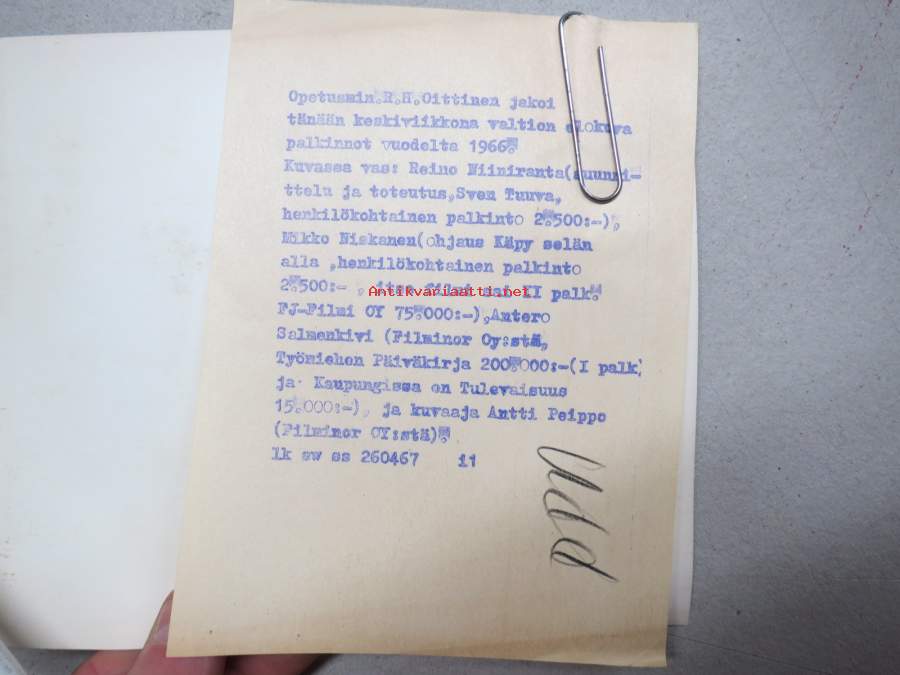 Opetusmin.R.H.Oittinen jakoi
tänään keskiviikkona valtion elokuva
palkinnot vuodelta 1966.
Kuvassa vas: Reino Niiniranta(suunni-
ttelu ja toteutus,Sven Tuuva,
henkilökohtainen palkinto 2.500:-),
Mikko Niskanen(ohjaus Käpy selän
alla ,henkilökohtainen palkinto
2.500:- , itse filmi sai II palk.
Antikvariaatti.net
FJ-Filmi OY 75.000:-),Antero
Salmenkivi (Filminor Oy:stä,
Työmiehen Päiväkirja 200.000:-(I palk)
ja Kaupungissa on Tulevaisuus
15.000:-), ja kuvaaja Antti Peippo
(Filminor OY:stä).
lk sw ss 260467 i1